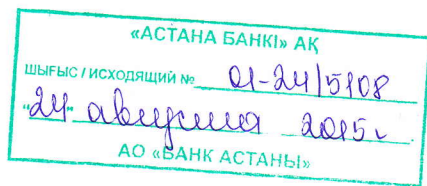 «АСТАНА БАНКІ» АҚ
ШЫҒЫС / ИСХОДЯЩИЙ № 01-24/5108
"24" августа 2015 г
АО «БАНК АСТАНЫ»